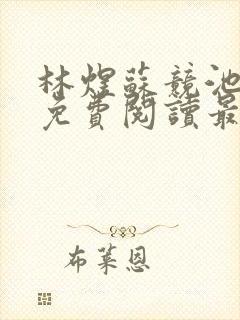 林煜蘇競池
免費閱讀最
布萊恩